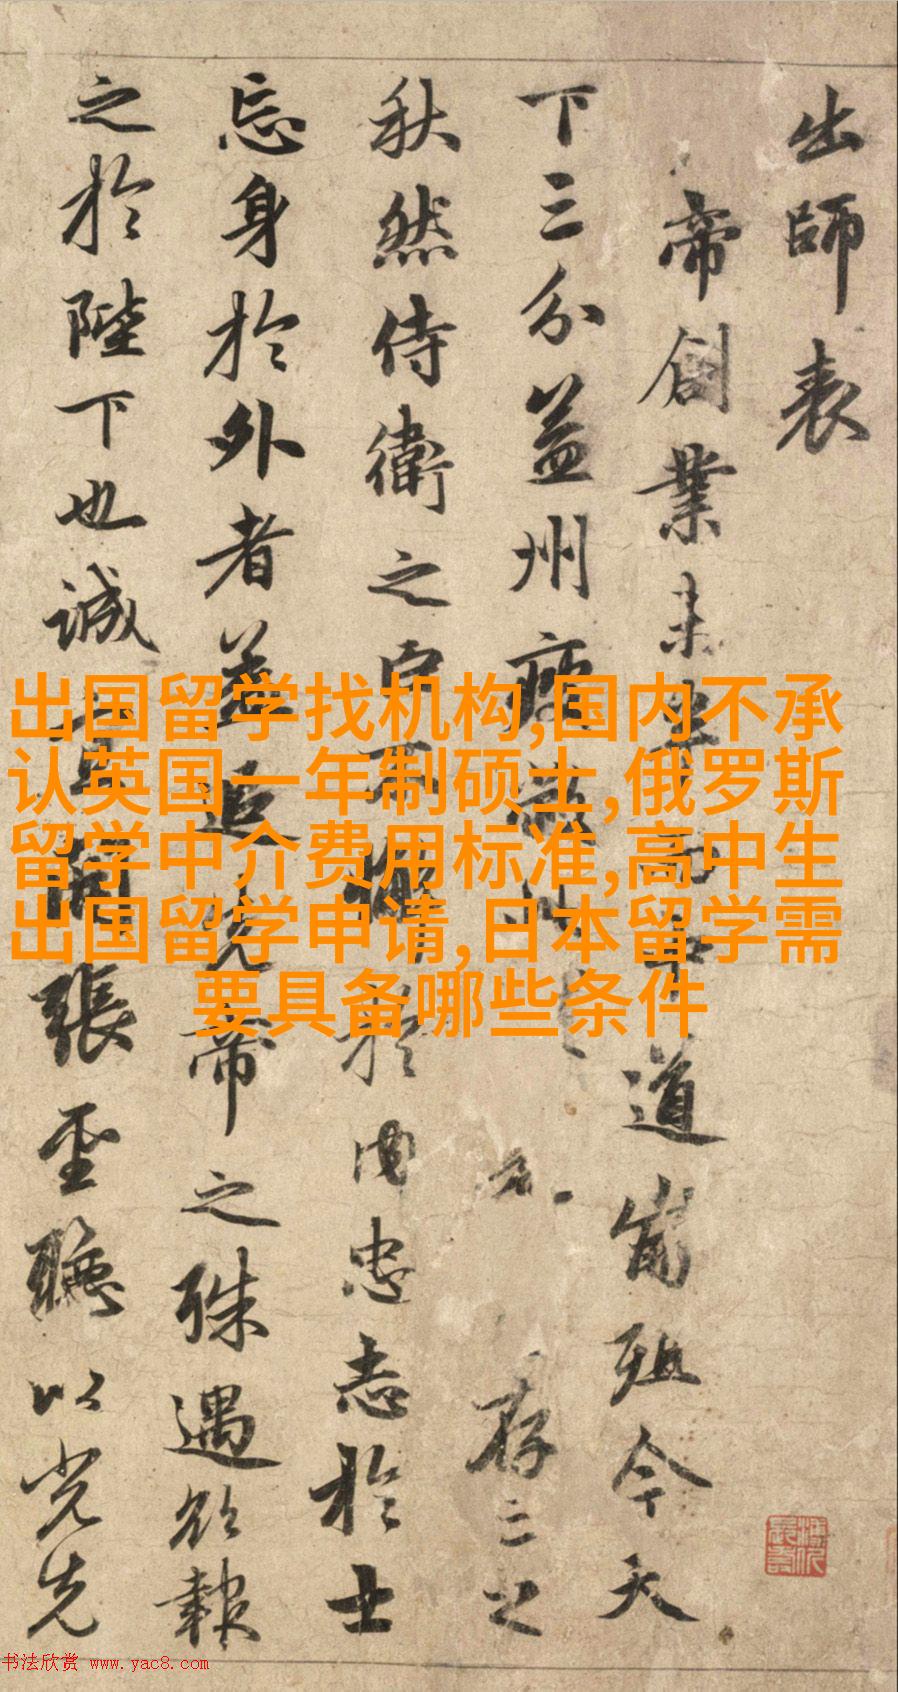 出師表
帝創業未半中道崩殂今天
下三分益州疲弊存亡之
秋然侍衛之臣不懈於内忠志於士
忘身於外者蓋追先帝之殊遇欲報
之於陛下也誠宜開張聖聽以光先
出国留学找机构,国内不承
认英国一年制硕士,俄罗斯
留学中介费用标准,高中生
出国留学申请,日本留学需
要具备哪些条件
书法欣赏 www.yac8.com